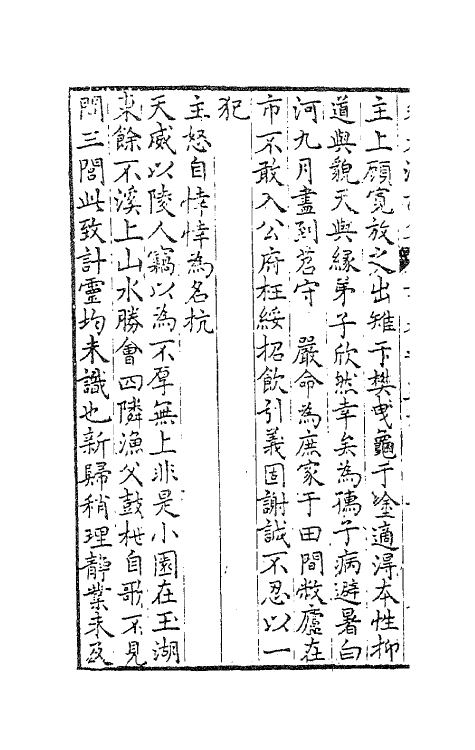 主上願寬放之出雉于樊曳龜于塗適得本性抑
道與貌天與緣弟子欣然幸矣為孺子病避暑白
河九月盡到苕守　嚴命為庶家于田間敝廬在
市不敢入公府枉綏招飲引義固謝誠不忍以一
犯
主怒自悻悻為名抗
天威以陵人竊以為不厚無上非是小園在玉湖
棗餘不溪上山水勝會四隣漁父鼓枻自歌不見
問三閭此致計靈均未識也新歸稍理靜業未及